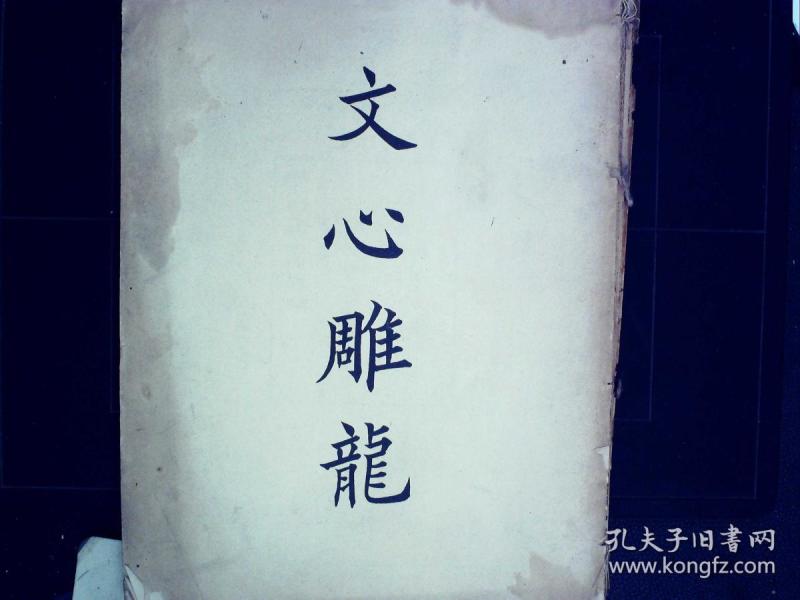 文心雕龍
孔夫子旧書网
www.kongfz.com